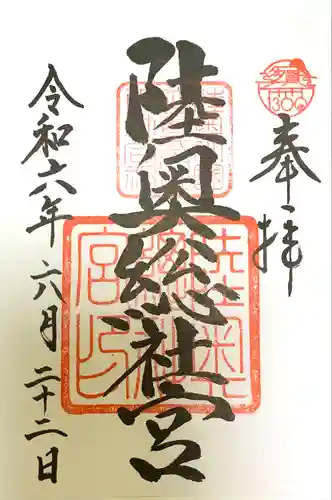 奉拝
陸奥総社宮
令和六年六月二十二日
1300